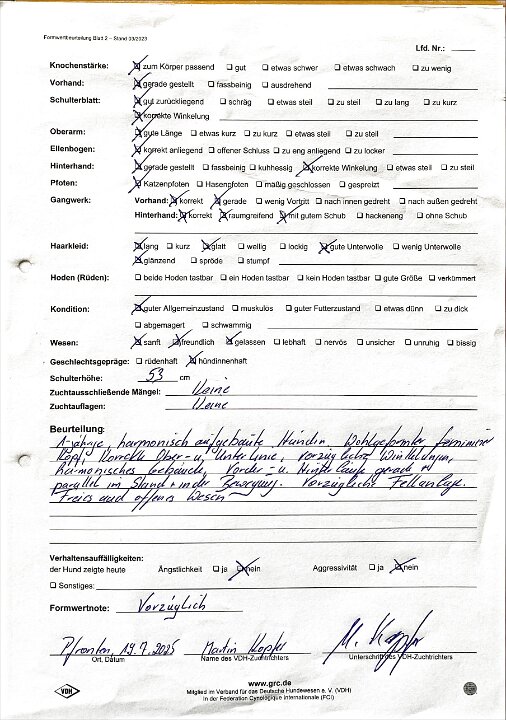 Formwertbeurteilung Blatt 2 – Stand 03/2023
Lfd. Nr.: ____
Knochenstärke: ☒ zum Körper passend ☐ gut ☐ etwas schwer ☐ etwas schwach ☐ zu wenig
Vorhand: ☒ gerade gestellt ☐ fassbeinig ☐ ausdrehend
Schulterblatt: ☒ gut zurückliegend ☐ schräg ☐ etwas steil ☐ zu steil ☐ zu lang ☐ zu kurz
☒ korrekte Winkelung
Oberarm: ☒ gute Länge ☐ etwas kurz ☐ zu kurz ☐ etwas steil ☐ zu steil
Ellenbogen: ☒ korrekt anliegend ☐ offener Schluss ☐ zu eng anliegend ☐ zu locker
Hinterhand: ☒ gerade gestellt ☐ fassbeinig ☐ kuhhessig ☒ korrekte Winkelung ☐ etwas steil ☐ zu steil
Pfoten: ☒ Katzenpfoten ☐ Hasenpfoten ☐ mäßig geschlossen ☐ gespreizt
Gangwerk: Vorhand: ☒ korrekt ☒ gerade ☐ wenig Vortritt ☐ nach innen gedreht ☐ nach außen gedreht
Hinterhand: ☒ korrekt ☒ raumgreifend ☒ mit gutem Schub ☐ hackeneng ☐ ohne Schub
Haarkleid: ☒ lang ☐ kurz ☒ glatt ☐ wellig ☐ lockig ☒ gute Unterwolle ☐ wenig Unterwolle
☒ glänzend ☐ spröde ☐ stumpf
Hoden (Rüden): ☐ beide Hoden tastbar ☐ ein Hoden tastbar ☐ kein Hoden tastbar ☐ gute Größe ☐ verkümmert
Kondition: ☒ guter Allgemeinzustand ☐ muskulös ☐ guter Futterzustand ☐ etwas dünn ☐ zu dick
☐ abgemagert ☐ schwammig
Wesen: ☒ sanft ☒ freundlich ☒ gelassen ☐ lebhaft ☐ nervös ☐ unsicher ☐ unruhig ☐ bissig
Geschlechtsgepräge: ☐ rüdenhaft ☒ hündinnenhaft
Schulterhöhe: 53 cm
Zuchtausschließende Mängel: Keine
Zuchtauflagen: Keine
Beurteilung:
harmonisch aufgebaute Hündin, Wohlgeformter femininer
Kopf, korrekte Ober- u. Unterlinie, vorzügliche Winkelungen,
harmonisches Gebäude, Vorder- u. Hinterläufe gerade u.
parallel im Stand + in der Bewegung. Vorzügliche Fellanlage.
Freies und offenes Wesen
Verhaltensauffälligkeiten:
der Hund zeigte heute Ängstlichkeit ☐ ja ☒ nein Aggressivität ☐ ja ☒ nein
☐ Sonstiges:
Formwertnote: Vorzüglich
Pfronten, 19.7.2025 Martin Kopfer M. Kopfer
Ort, Datum Name des VDH-Zuchtrichters Unterschrift des VDH-Zuchtrichters
VDH
www.grc.de
Mitglied im Verband für das Deutsche Hundewesen e. V. (VDH)
in der Federation Cynologique Internationale (FCI)